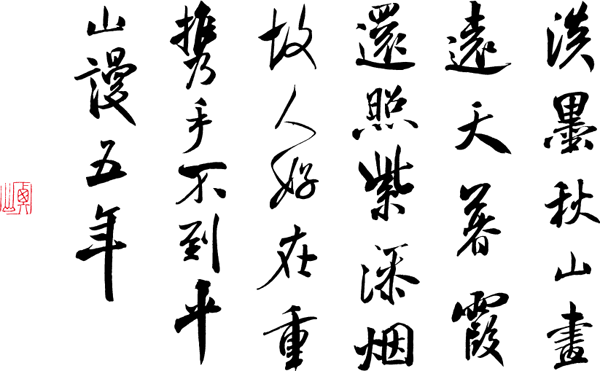 淡墨秋山畫
遠天暮霞
還照紫添烟
故人好在重
携手不到平
山謾五年